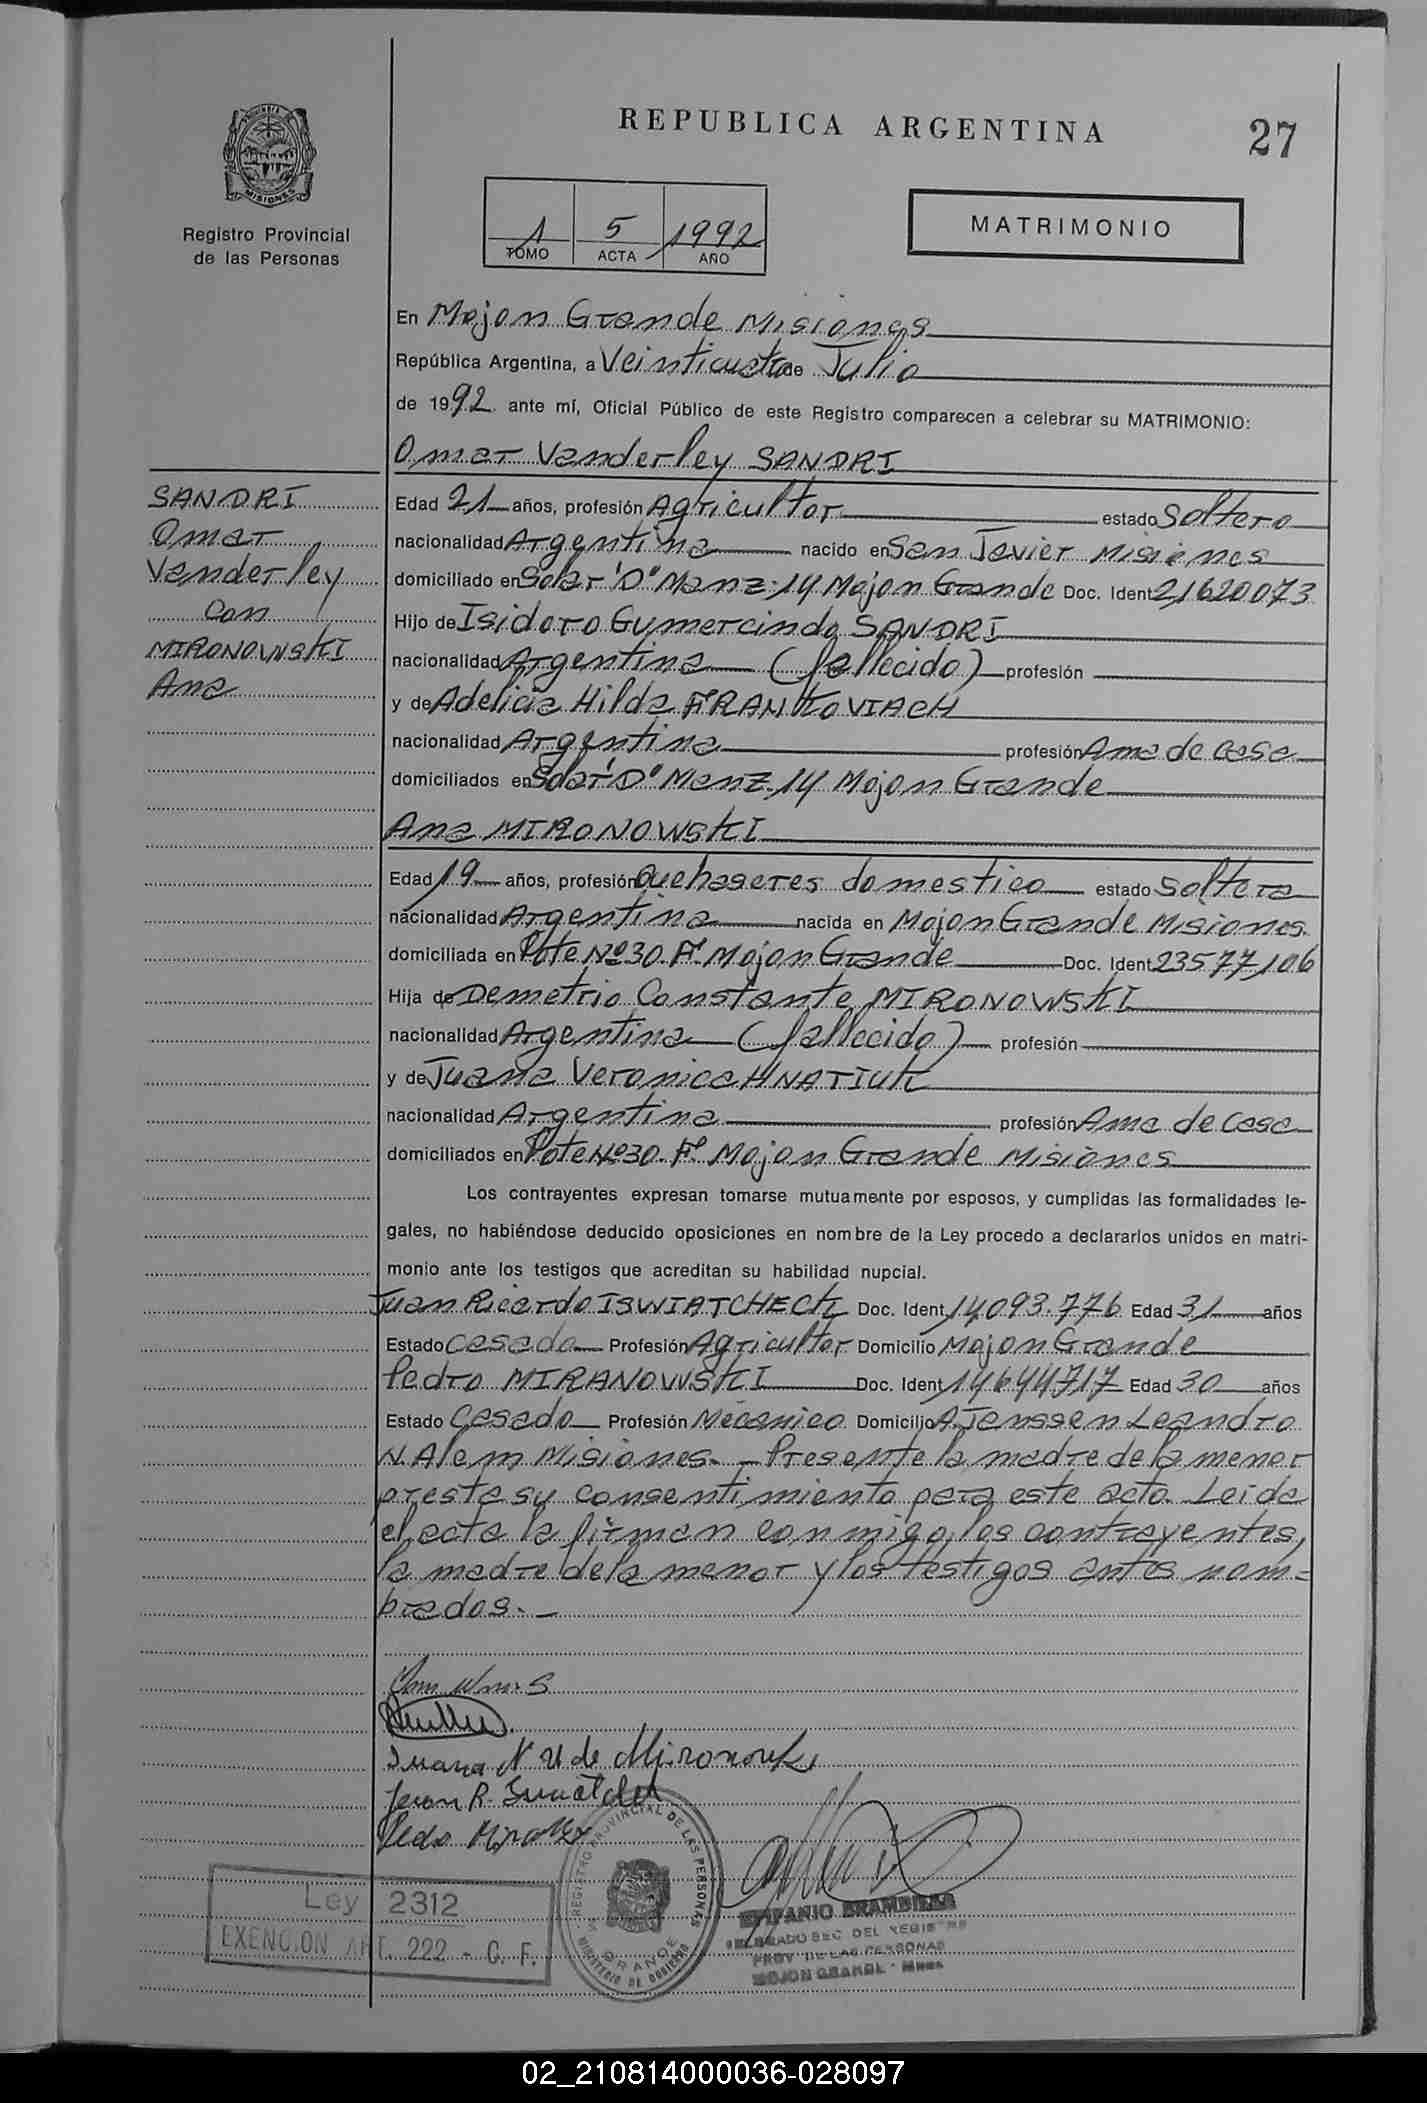 REPUBLICA ARGENTINA
27
PROVINCIA DE
MISIONES
Registro Provincial
de las Personas
1 5 1992
TOMO ACTA AÑO
MATRIMONIO
En Mojon Grande Misiones
República Argentina, a Veinticuatro de Julio
de 1992 ante mí, Oficial Público de este Registro comparecen a celebrar su MATRIMONIO:
Omar Vanderley SANDRI
SANDRI
Omar
Vanderley
con
MIRONOWSKI
Ana
Edad 21 años, profesión Agricultor estado Soltero
nacionalidad Argentina nacido en San Javier Misiones
domiciliado en Solar "D" Manz. 14 Mojon Grande Doc. Ident 21620073
Hijo de Isidoro Gumercindo SANDRI
nacionalidad Argentina (fallecido) profesión
y de Adelicia Hilda FRANKOVIACH
nacionalidad Argentina profesión Ama de casa
domiciliados en Solar "D" Manz. 14 Mojon Grande
Ana MIRONOWSKI
Edad 19 años, profesión Quehaseres domestico estado Soltera
nacionalidad Argentina nacida en Mojon Grande Misiones.
domiciliada en Lote Nº 30. Aº. Mojon Grande Doc. Ident 23577106
Hija de Demetrio Constante MIRONOWSKI
nacionalidad Argentina (fallecido) profesión
y de Juana Veronica HNATIUK
nacionalidad Argentina profesión Ama de casa
domiciliados en Lote Nº 30. Aº. Mojon Grande Misiones
Los contrayentes expresan tomarse mutuamente por esposos, y cumplidas las formalidades le-
gales, no habiéndose deducido oposiciones en nombre de la Ley procedo a declararlos unidos en matri-
monio ante los testigos que acreditan su habilidad nupcial.
Juan Ricardo ISWIATCHECK Doc. Ident 14.093.776 Edad 31 años
Estado Casado Profesión Agricultor Domicilio Mojon Grande
Pedro MIRANOWSKI Doc. Ident 14644717 Edad 30 años
Estado Casado Profesión Mecanico Domicilio A. Janssen Leandro
N. Alem Misiones. - Presente la madre de la menor
presta su consentimiento para este acto. Leida
el acta la firman conmigo, los contrayentes,
la madre de la menor y los testigos antes nom=
brados. -
Juana de Mironowsk
Juan R.
Ley 2312
EXENCION ART. 222 - C. F.
REGISTRO PROVINCIAL DE LAS PERSONAS
GRANDE
MINISTERIO DE GOBIERNO
EPIFANIO BRAMBILLA
DELEGADO SEC. DEL REGISTRO
PROV. DE LAS PERSONAS
MOJON GRANDE - Mnes
02_210814000036-028097